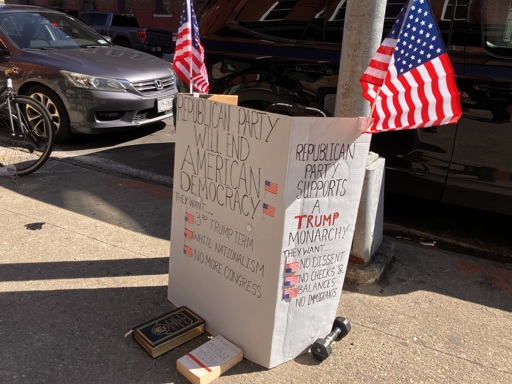 REPUBLICAN PARTY
WILL END
AMERICAN
DEMOCRACY
THEY WANT...
3RD TRUMP TERM
WHITE NATIONALISM
NO MORE CONGRESS
REPUBLICAN
PARTY
SUPPORTS
A
TRUMP
MONARCHY
THEY WANT...
NO DISSENT
NO CHECKS &
BALANCES
NO IMMIGRANTS